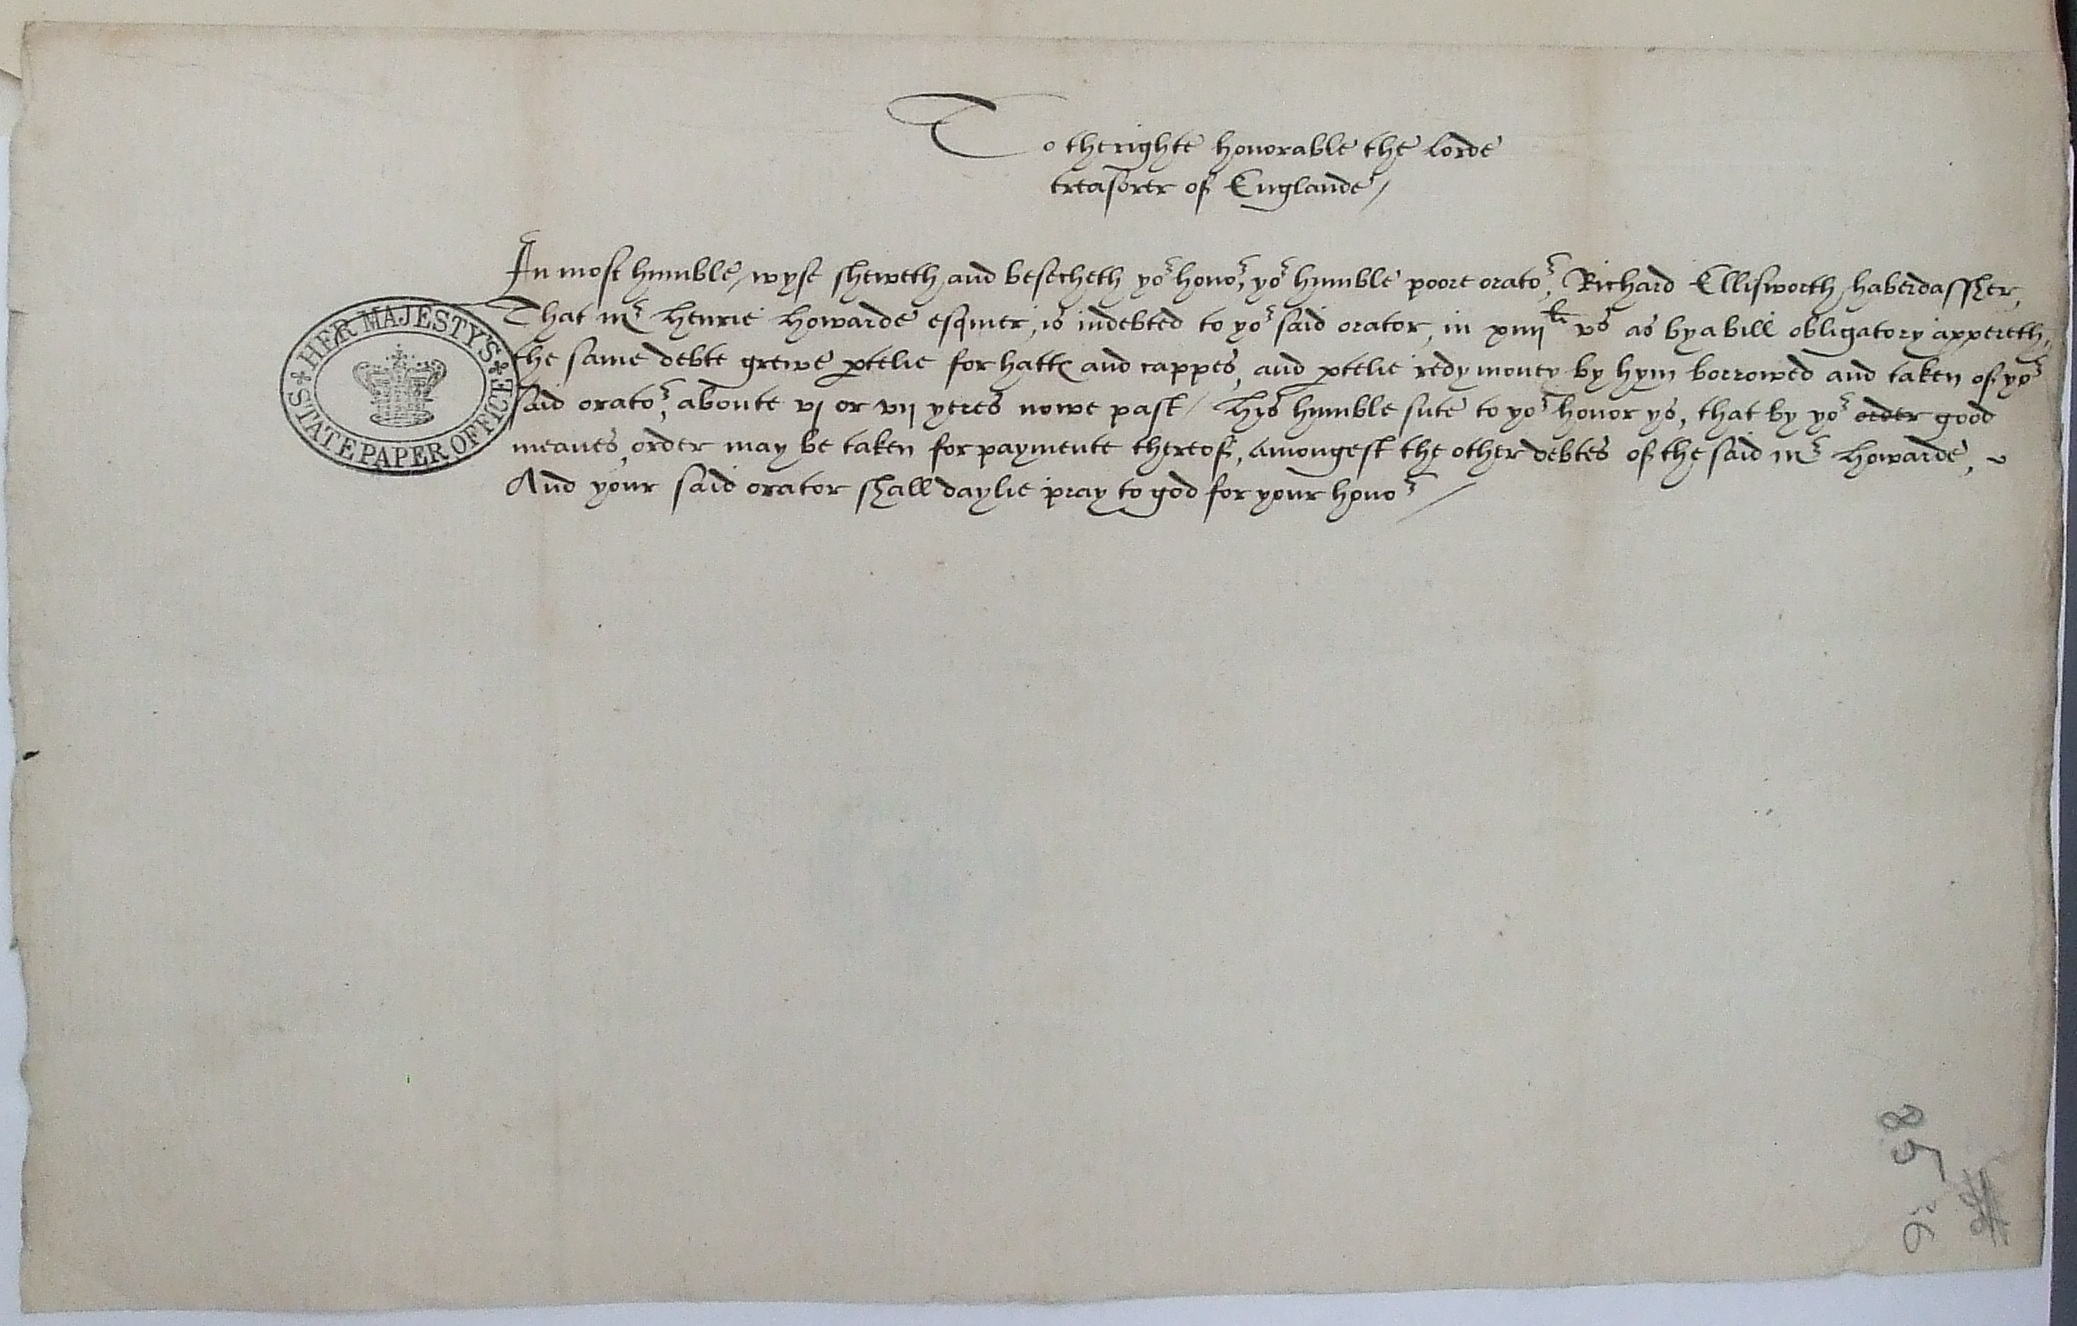 To therighte honorable the Lorde
treasorer of Englande /
In most humble wyse sheweth and besecheth yor honor, yor humble poore orator, Richard Ellisworth haberdassher,
That mr Henrie Howarde esquier, is indebted to yor said orator, in xiiijli vs as by a bill obligatory appereth,
the same debte grewe ptelie for hattes and cappes, and ptelie redy money by hym borrowed and taken of yor
said orator, aboute vj or vij yeres nowe past / His humble sute to yor honor ys, that by yor order good
meanes, order may be taken for paymente thereof, amongest the other debtes of the said mr Howarde,
And your said orator shall daylie pray to god for your honor /
HER MAJESTY'S
STATE PAPER OFFICE
85